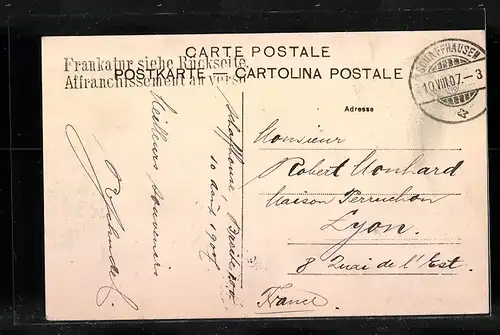 CARTE POSTALE
Frankatur siehe Rückseite
Affranchissement au verso
POSTKARTE — CARTOLINA POSTALE
SCHAFFHAUSEN
10.VIII.07.–3
Adresse
Schaffhouse,
10 Août 1907
Meilleurs souvenirs
Monsieur
Robert Monhard
Maison Perruchon
Lyon.
8 Quai de l'Est.
France.